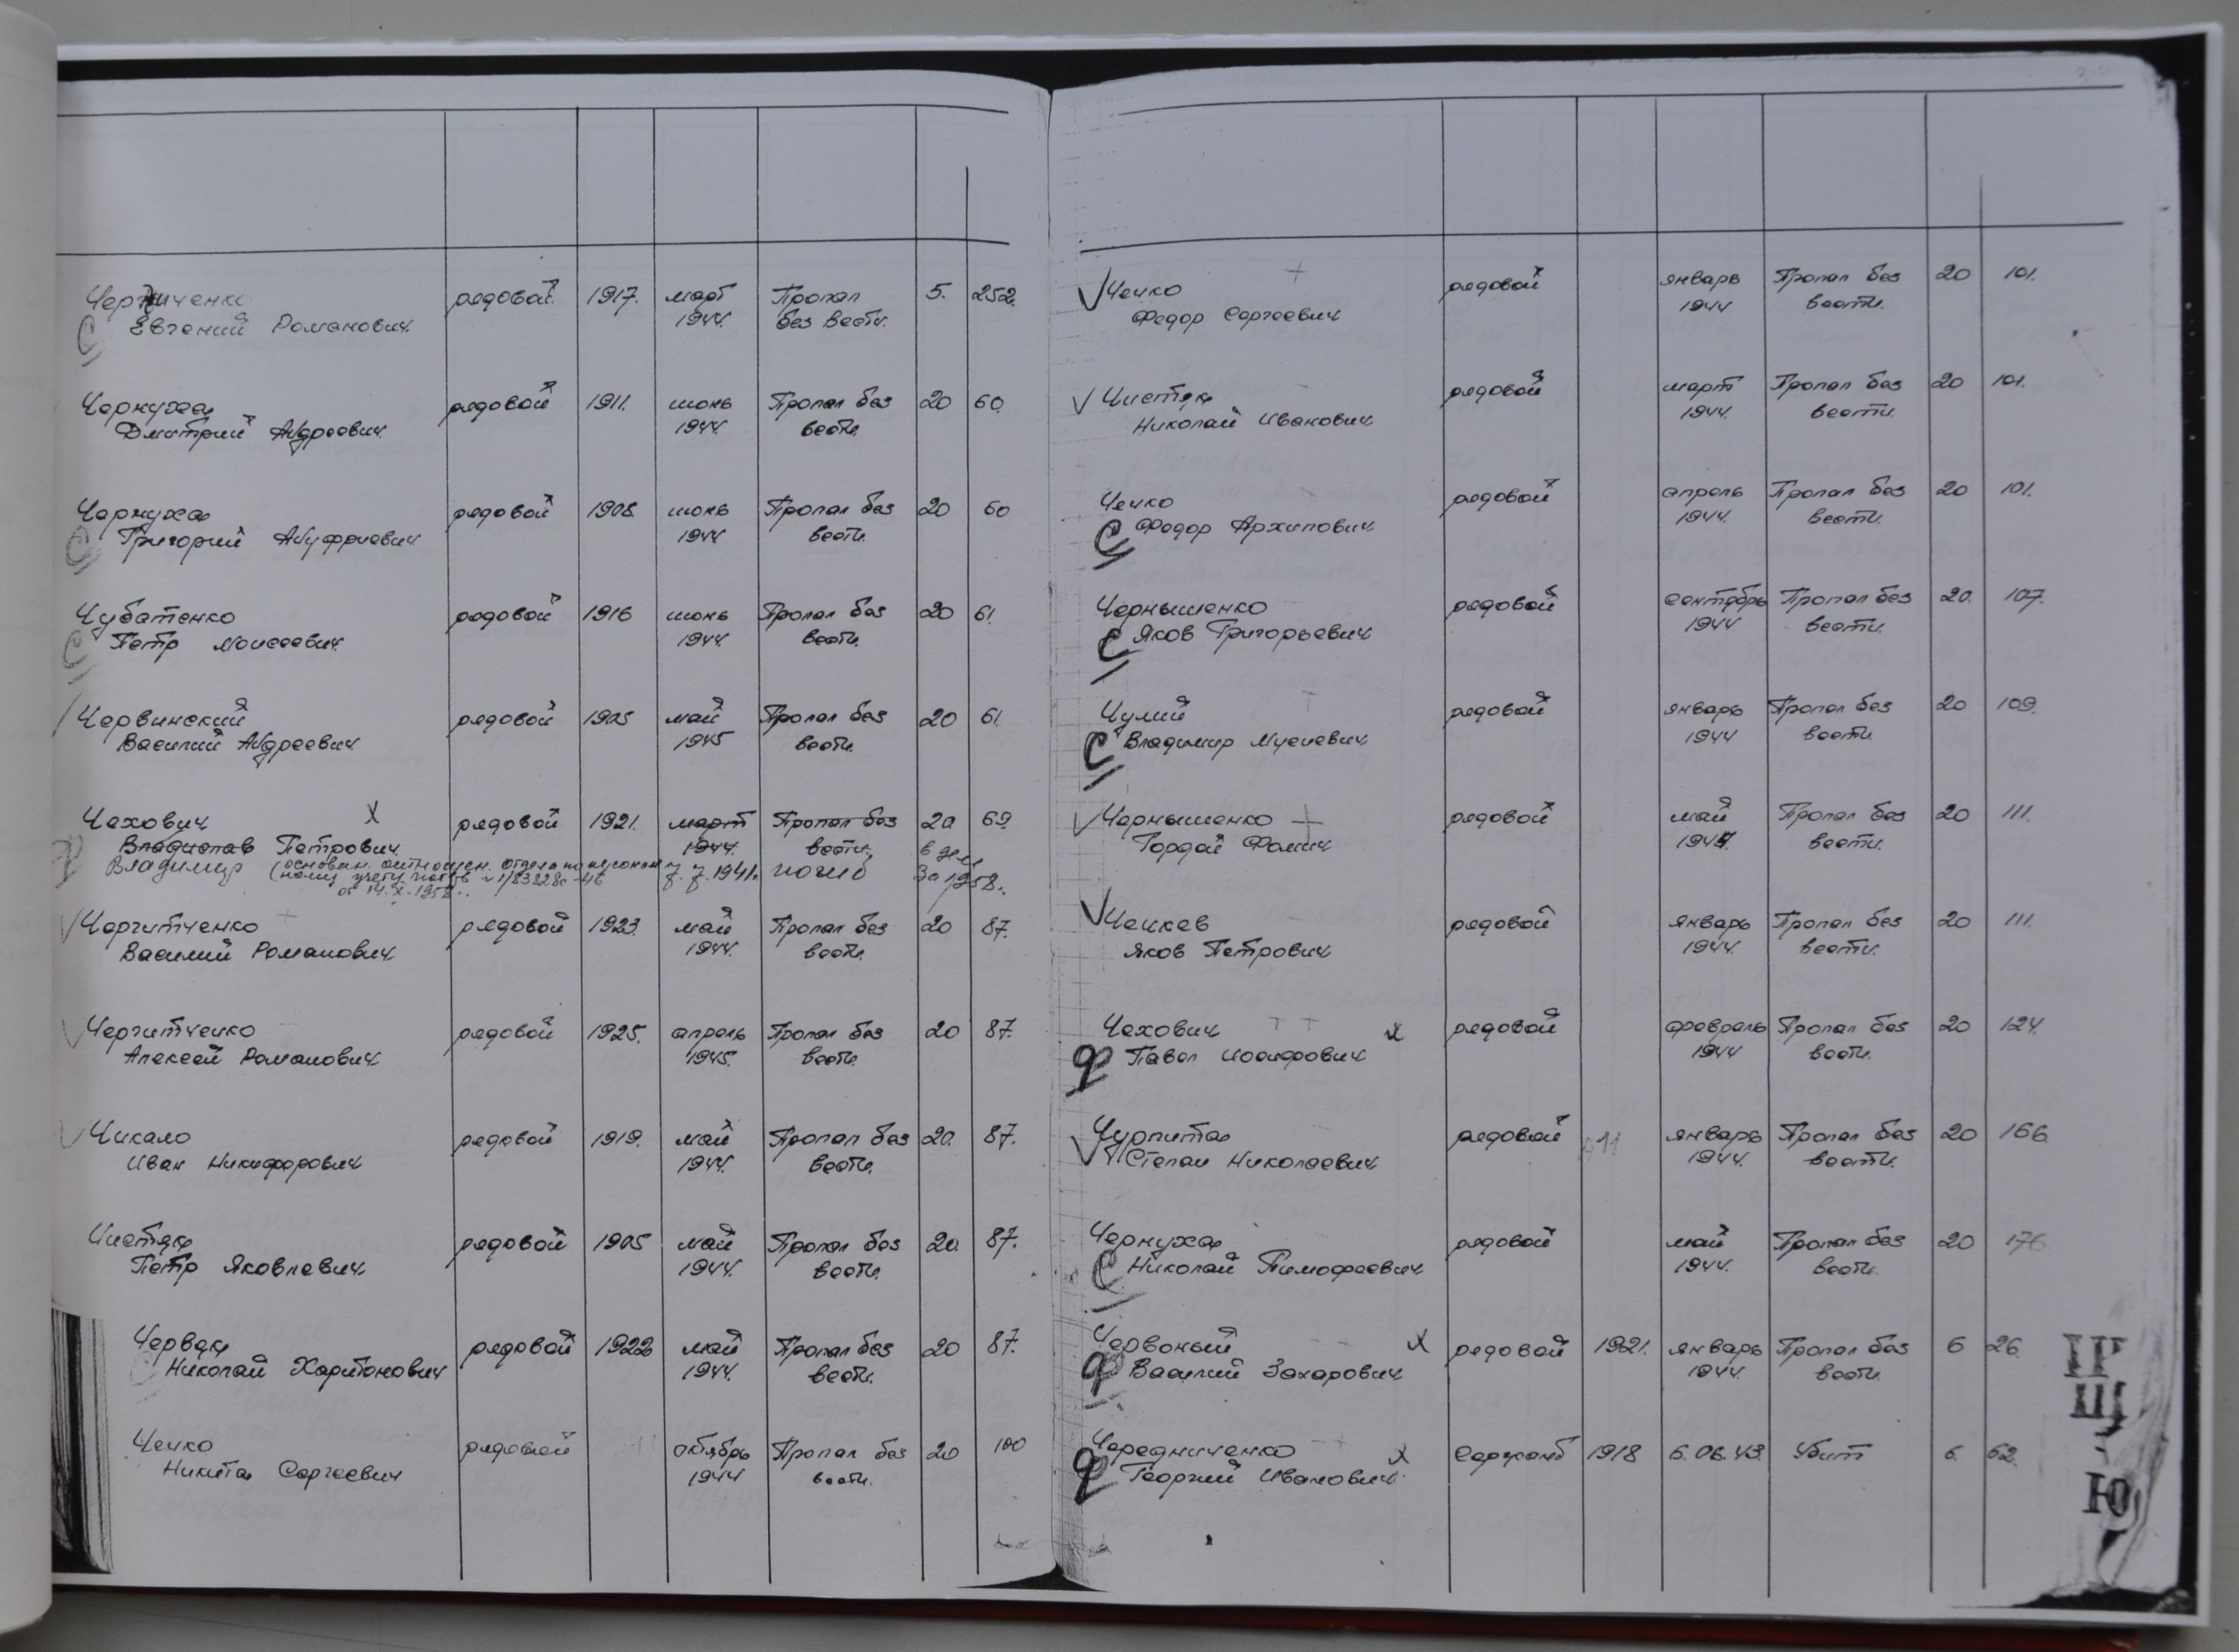 Чергиченко рядовой 1917. март Пропал 5. 252.
Евгений Романович 1944. без вести.
Чернуха рядовой 1911. июнь Пропал без 20 60
Дмитрий Андреевич 1944. вести.
Чернуха рядовой 1908. июнь Пропал без 20 60
Григорий Ануфриевич 1944 вести.
Чубатенко рядовой 1916 июнь Пропал без 20 61.
Петр Моисеевич 1944. вести.
Червинский рядовой 1905 май Пропал без 20 61.
Василий Андреевич 1945 вести.
Чехович х рядовой 1921. март Пропал без 20 69.
Владислав Петрович 1944. вести, в деле
Владимир (основан. отношен. отдела по персональн. 7.7.1941г. погиб За 1958г.
ному учету потерь
от 14.X.1958г.
Чергитченко рядовой 1923. май Пропал без 20 87.
Василий Романович 1944. вести.
Чергитченко рядовой 1925. апрель Пропал без 20 87.
Алексей Романович 1945. вести.
Чикало рядовой 1919. май Пропал без 20. 87.
Иван Никифорович 1944. вести.
Чистяк рядовой 1905 май Пропал без 20. 87.
Петр Яковлевич 1944. вести.
Червяк рядовой 1922 май Пропал без 20 87.
Николай Харитонович 1944. вести.
Чечко рядовой октябрь Пропал без 20 100
Никита Сергеевич 1944 вести.
Чечко рядовой январь Пропал без 20 101.
Федор Сергеевич 1944 вести.
Чистяк рядовой март Пропал без 20 101.
Николай Иванович 1944. вести.
Чечко рядовой апрель Пропал без 20 101.
С Федор Архипович 1944. вести.
Чернышенко рядовой сентябрь Пропал без 20. 107.
С Яков Григорьевич 1944 вести.
Чулий рядовой январь Пропал без 20 109.
С Владимир Мусиевич 1944 вести.
Чернышенко рядовой май Пропал без 20 111.
Гордей Фомич 1944. вести.
Чечкев рядовой январь Пропал без 20 111.
Яков Петрович 1944. вести.
Чехович х рядовой февраль Пропал без 20 124.
Павел Иосифович 1944 вести.
Чурпита рядовой 11 январь Пропал без 20 166
Степан Николаевич 1944. вести.
Чернуха рядовой май Пропал без 20 176
С Николай Тимофеевич 1944. вести.
Червоный х рядовой 1921. январь Пропал без 6 26.
Василий Захарович 1944. вести.
Чередниченко х Сержант 1918 6.06.43. Убит 6. 62.
Георгий Иванович
Щ
Ю